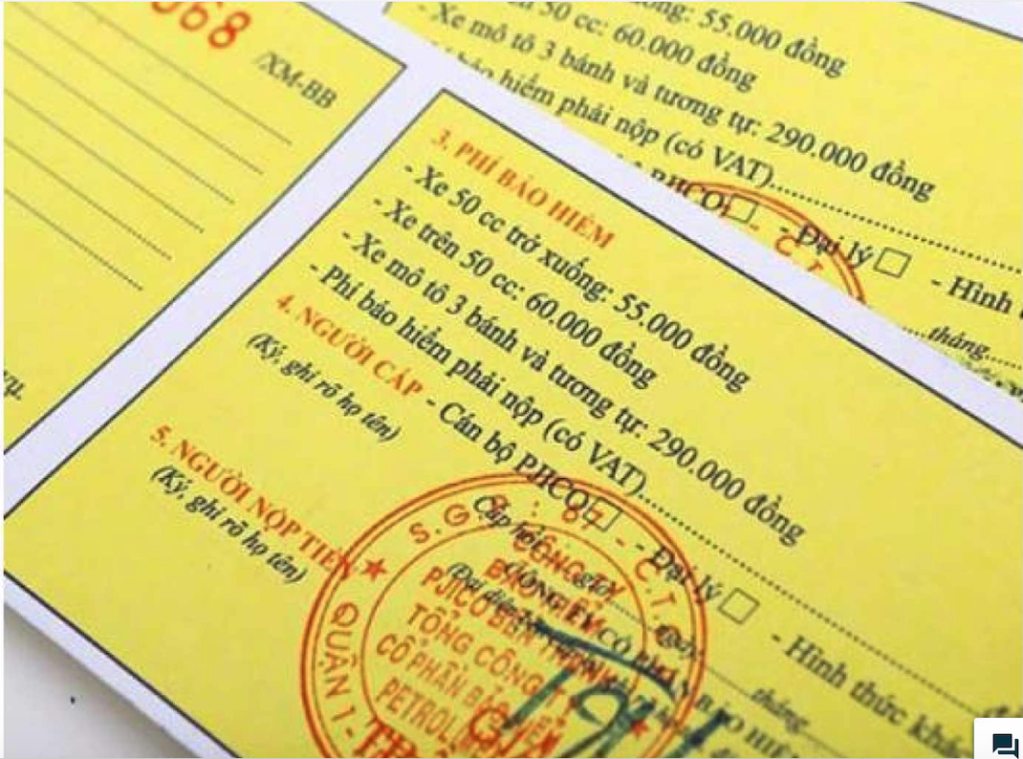 068
/XM-BB
50 cc: 60.000 đồng
- Xe mô tô 3 bánh và tương tự: 290.000 đồng
hiểm phải nộp (có VAT)
PJICO □ - Đại lý □ - Hình
tháng
3. PHÍ BẢO HIỂM
- Xe 50 cc trở xuống: 55.000 đồng
- Xe trên 50 cc: 60.000 đồng
- Xe mô tô 3 bánh và tương tự: 290.000 đồng
- Phí bảo hiểm phải nộp (có VAT)
4. NGƯỜI CẤP - Cán bộ PJICO □ - Đại lý □ - Hình thức khác
(Ký, ghi rõ họ tên)
5. NGƯỜI NỘP TIỀN
(Ký, ghi rõ họ tên)
Cấp hồi giờ
tháng
CÔNG TY
BẢO HIỂM
PJICO BẾN THÀNH
TỔNG CÔNG TY
CỔ PHẦN BẢO HIỂM
QUẬN 1